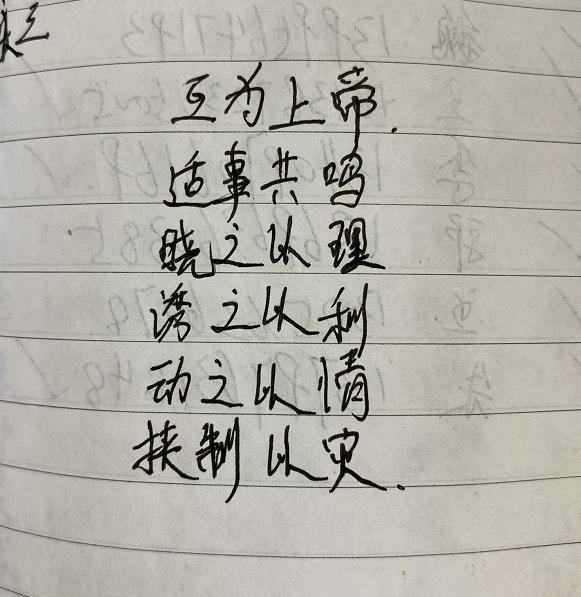 互为上帝.
适事共鸣
晓之以理
诱之以利
动之以情
挟制以灾.